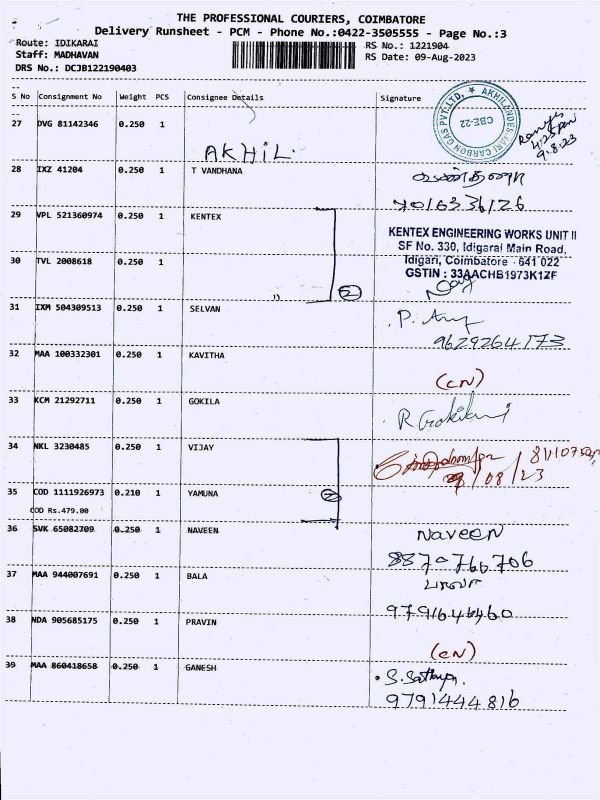 THE PROFESSIONAL COURIERS, COIMBATORE
Delivery Runsheet - PCM - Phone No.:0422-3505555 - Page No.:3
Route: IDIKARAI RS No.: 1221904
Staff: MADHAVAN RS Date: 09-Aug-2023
DRS No.: DCJB122190403
S No Consignment No Weight PCS Consignee Details Signature
27 DVG 81142346 0.250 1
AKHIL.
AKHILANDESHWARI CARBON GAS PVT.LTD. ★
CBE-22
4:25pm
9.8.23
28 IXZ 41204 0.250 1 T VANDHANA
29 VPL 521360974 0.250 1 KENTEX
KENTEX ENGINEERING WORKS UNIT II
SF No. 330, Idigarai Main Road,
30 TVL 2008618 0.250 1
Idigari, Coimbatore - 641 022
GSTIN : 33AACHB1973K1ZF
2
31 IXM 504309513 0.250 1 SELVAN
9629264173
32 MAA 100332301 0.250 1 KAVITHA
(CN)
33 KCM 21292711 0.250 1 GOKILA
R. Gokilani
34 NKL 3230485 0.250 1 VIJAY
/08/23
35 COD 1111926973 0.210 1 YAMUNA
2
COD Rs.479.00
36 SVK 65082709 0.250 1 NAVEEN
Naveen
8870766706
37 MAA 944007691 0.250 1 BALA
பாலா
38 NDA 905685175 0.250 1 PRAVIN
(CN)
39 MAA 860418658 0.250 1 GANESH
S. Sathya.
9791444816